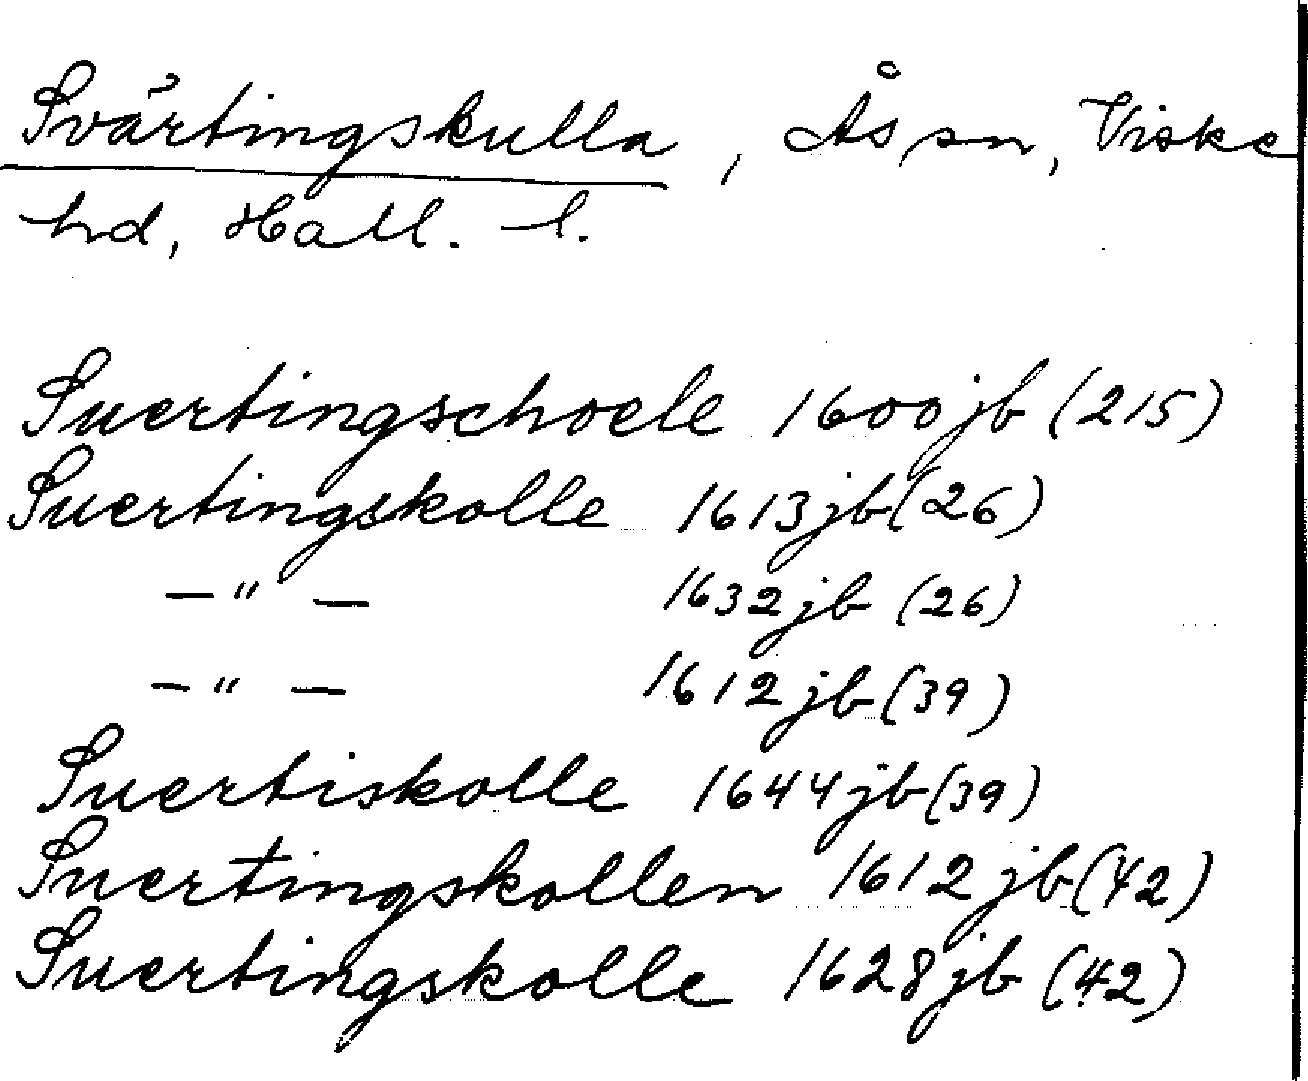 Svärtingskulla, Ås sn, Viske
hd, Hall. l.
Suertingschoele 1600 jb (215)
Suertingskolle 1613 jb (26)
— " — 1632 jb (26)
— " — 1612 jb (39)
Suertiskolle 1644 jb (39)
Suertingskollen 1612 jb (42)
Suertingskolle 1628 jb (42)